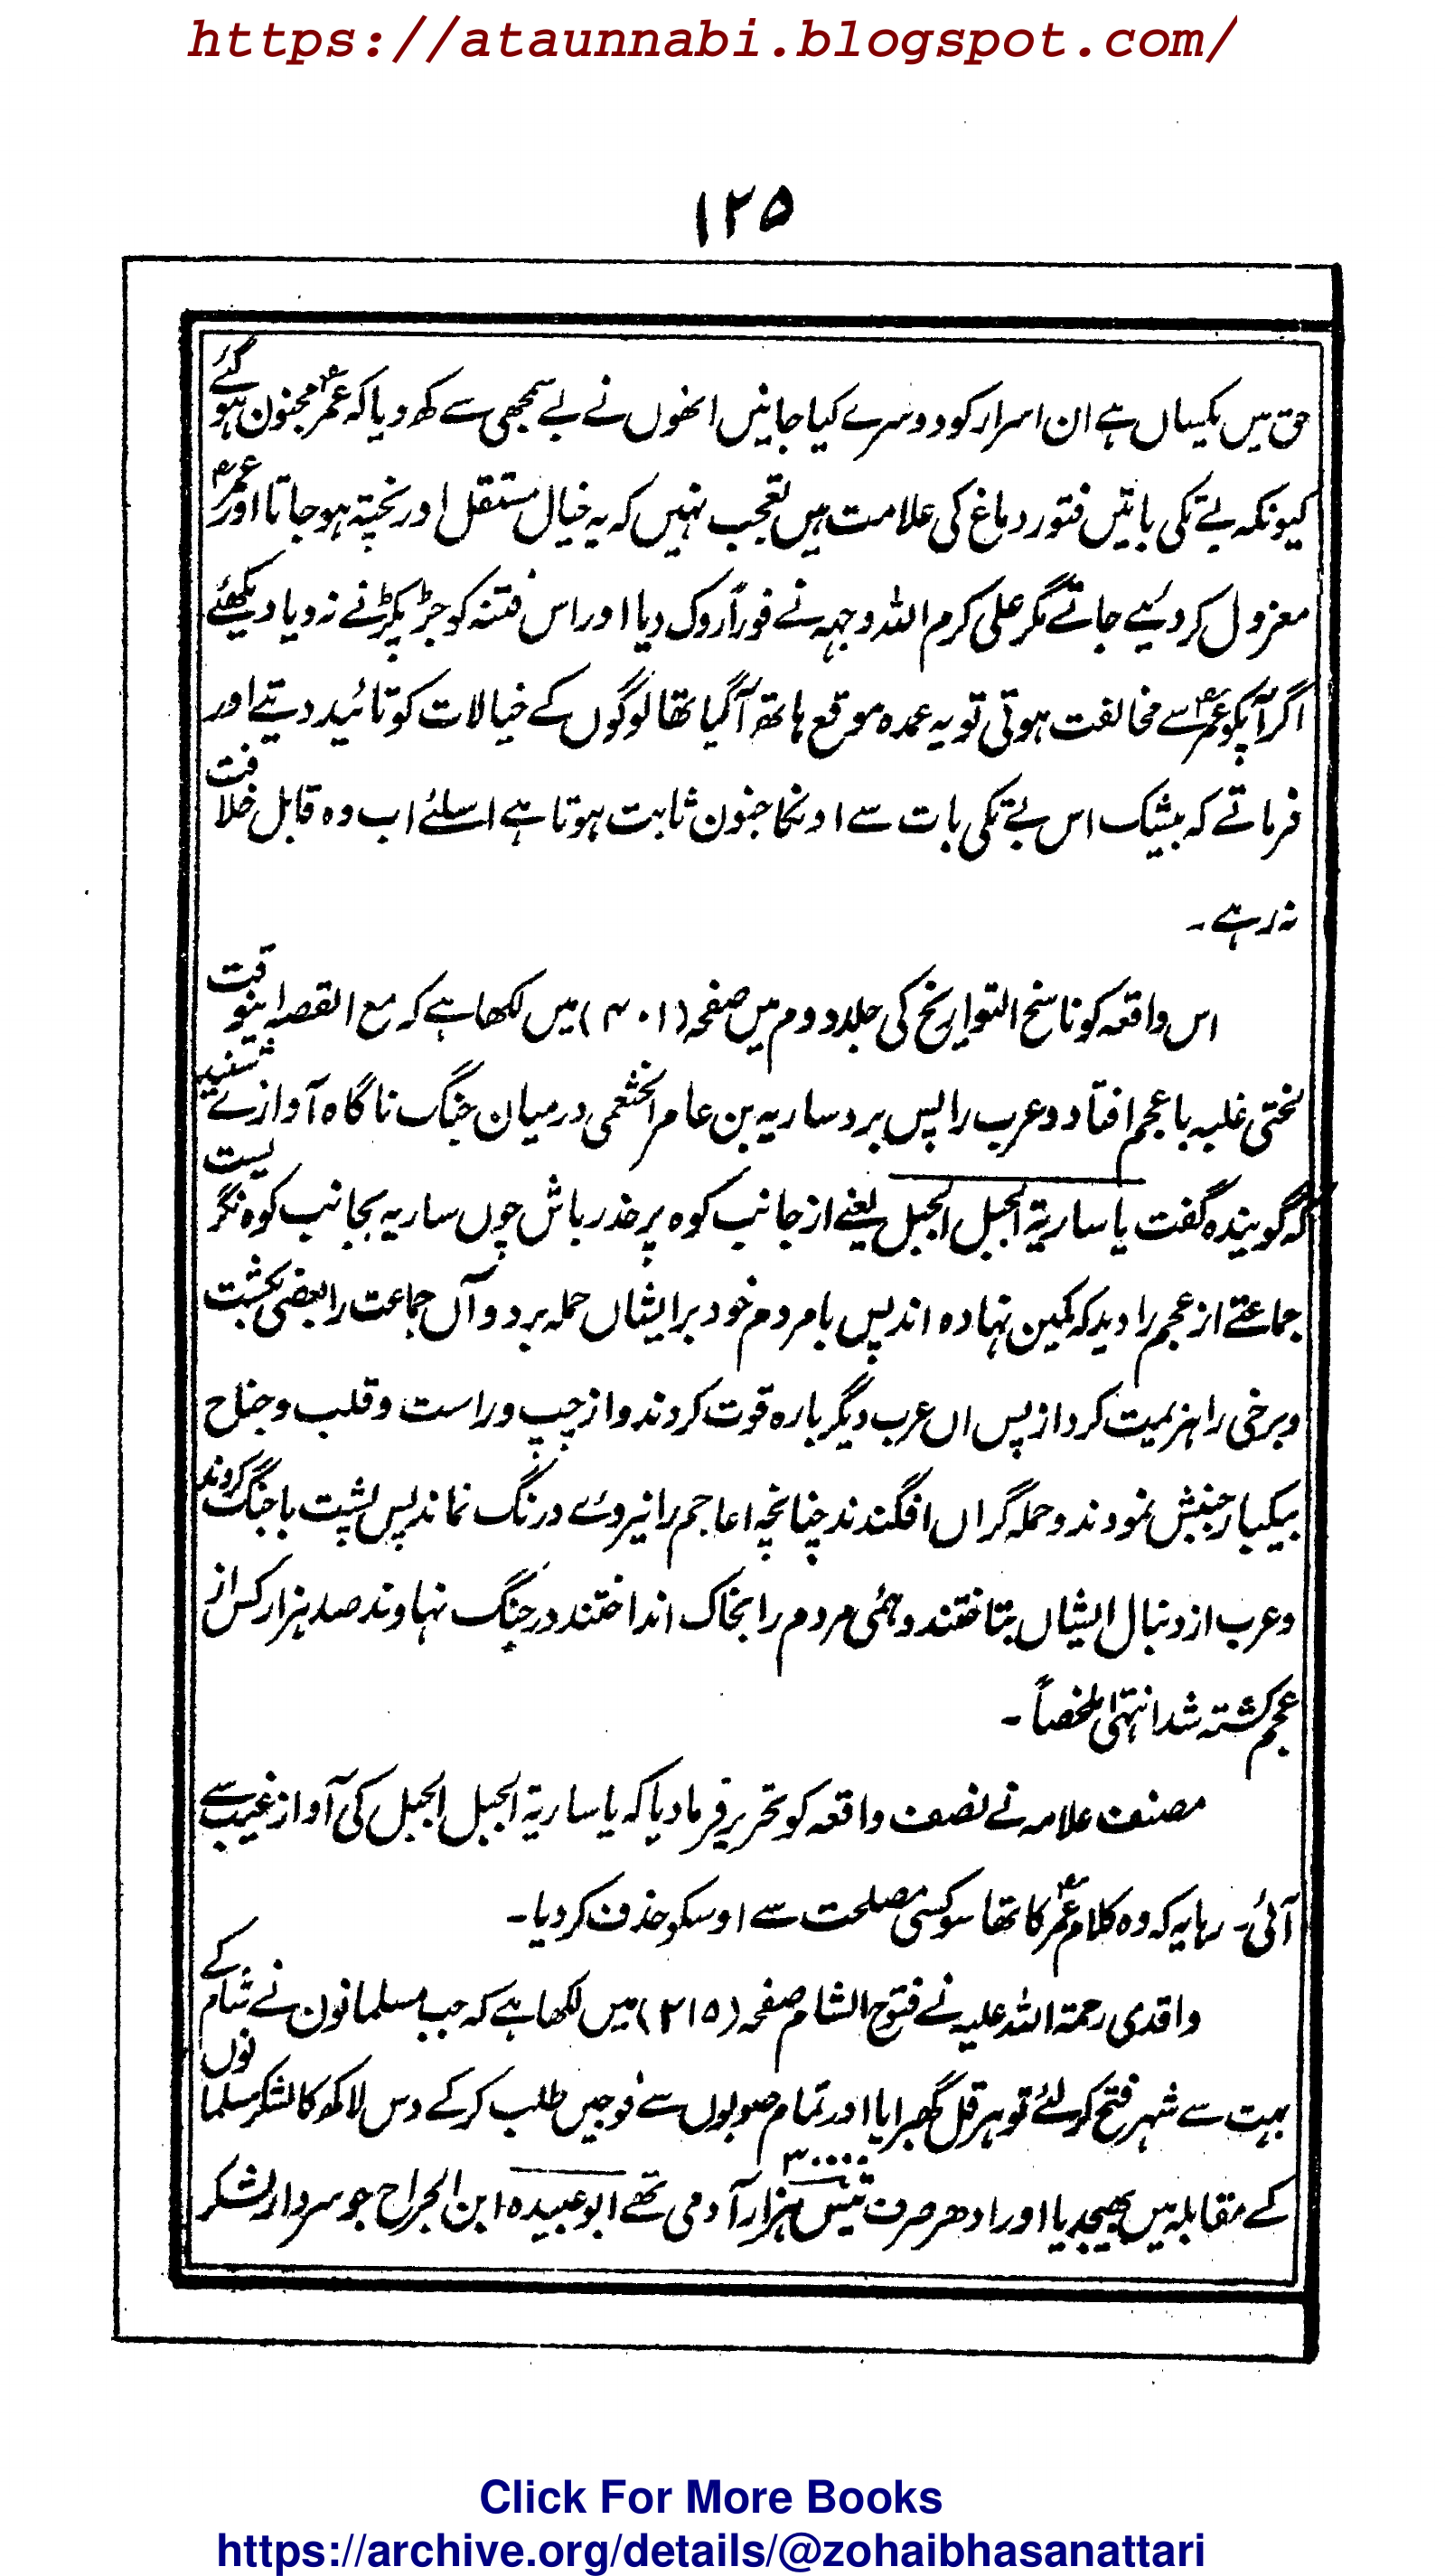 https://ataunnabi.blogspot.com/
۱۲۵
حق میں یکساں ہے ان اسرار کو دوسرے کیا جانیں انھوں نے بے سمجھی سے کھ دیا کہ عمرؓ مجنون ہو گئے
کیونکہ بے تکی باتیں فتور دماغ کی علامت ہیں تعجب نہیں کہ یہ خیال مستقل اور پختہ ہو جاتا اور عمرؓ
معزول کر دئیے جاتے مگر علی کرم اللہ وجہہ نے فوراً روک دیا اور اس فتنہ کو جڑ پکڑنے نہ دیا دیکھئے
اگر آپکو عمرؓ سے مخالفت ہوتی تو یہ عمدہ موقع ہاتھ آگیا تھا لوگوں کے خیالات کو تائید دیتے اور
فرماتے کہ بیشک اس بے تکی بات سے اونکا جنون ثابت ہوتا ہے اسلئے اب وہ قابل خلافت
نہ رہے ۔
اس واقعہ کو ناسخ التواریخ کی جلد دوم میں صفحہ (۴۰۱) میں لکھا ہے کہ مع القصہ اینوقت
لختی غلبہ با عجم افتاد و عرب را پس برد ساریہ بن عامر الخثعمی درمیان جنگ ناگاہ آوازے شنید
کہ گویندہ گفت یا ساریۃ الجبل الجبل یعنے از جانب کوہ پر حذر باش چوں ساریہ بجانب کوہ نگریست
جماعتے از عجم را دید کہ کمین نہادہ اند پس با مردم خود بر ایشاں حملہ برد و آں جماعت را بعضی بکشت
و برخی را ہزیمت کرد از پس اں عرب دیگر بارہ قوت کردند و از چپ و راست و قلب و جناح
بیکبار جنبش نمودند و حملہ گراں افگندند چنانچہ اعاجم را نیروے درنگ نماند پس پشت با جنگ کردند
و عرب از دنبال ایشاں بتاختند و ہمی مردم را بخاک انداختند در جنگ نہاوند صد ہزار کس از
عجم کشتہ شد انتہیٰ ملخصاً ۔
مصنف علامہ نے نصف واقعہ کو تحریر فرما دیا کہ یا ساریۃ الجبل الجبل کی آواز غیب سے
آئی ۔ رہا یہ کہ وہ کلام عمرؓ کا تھا سو کسی مصلحت سے اوسکو حذف کر دیا ۔
واقدی رحمۃ اللہ علیہ نے فتوح الشام صفحہ (۲۱۵) میں لکھا ہے کہ جب مسلمانون نے شام کے
بہت سے شہر فتح کر لئے تو ہرقل گھبرایا اور تمام صوبوں سے فوجیں طلب کر کے دس لاکھ کا لشکر مسلمانوں
کے مقابلہ میں بھیجدیا اور ادھر صرف تیس ہزار ۳۰۰۰۰ آدمی تھے ابو عبیدہ ابن الجراح جو سردار لشکر
Click For More Books
https://archive.org/details/@zohaibhasanattari